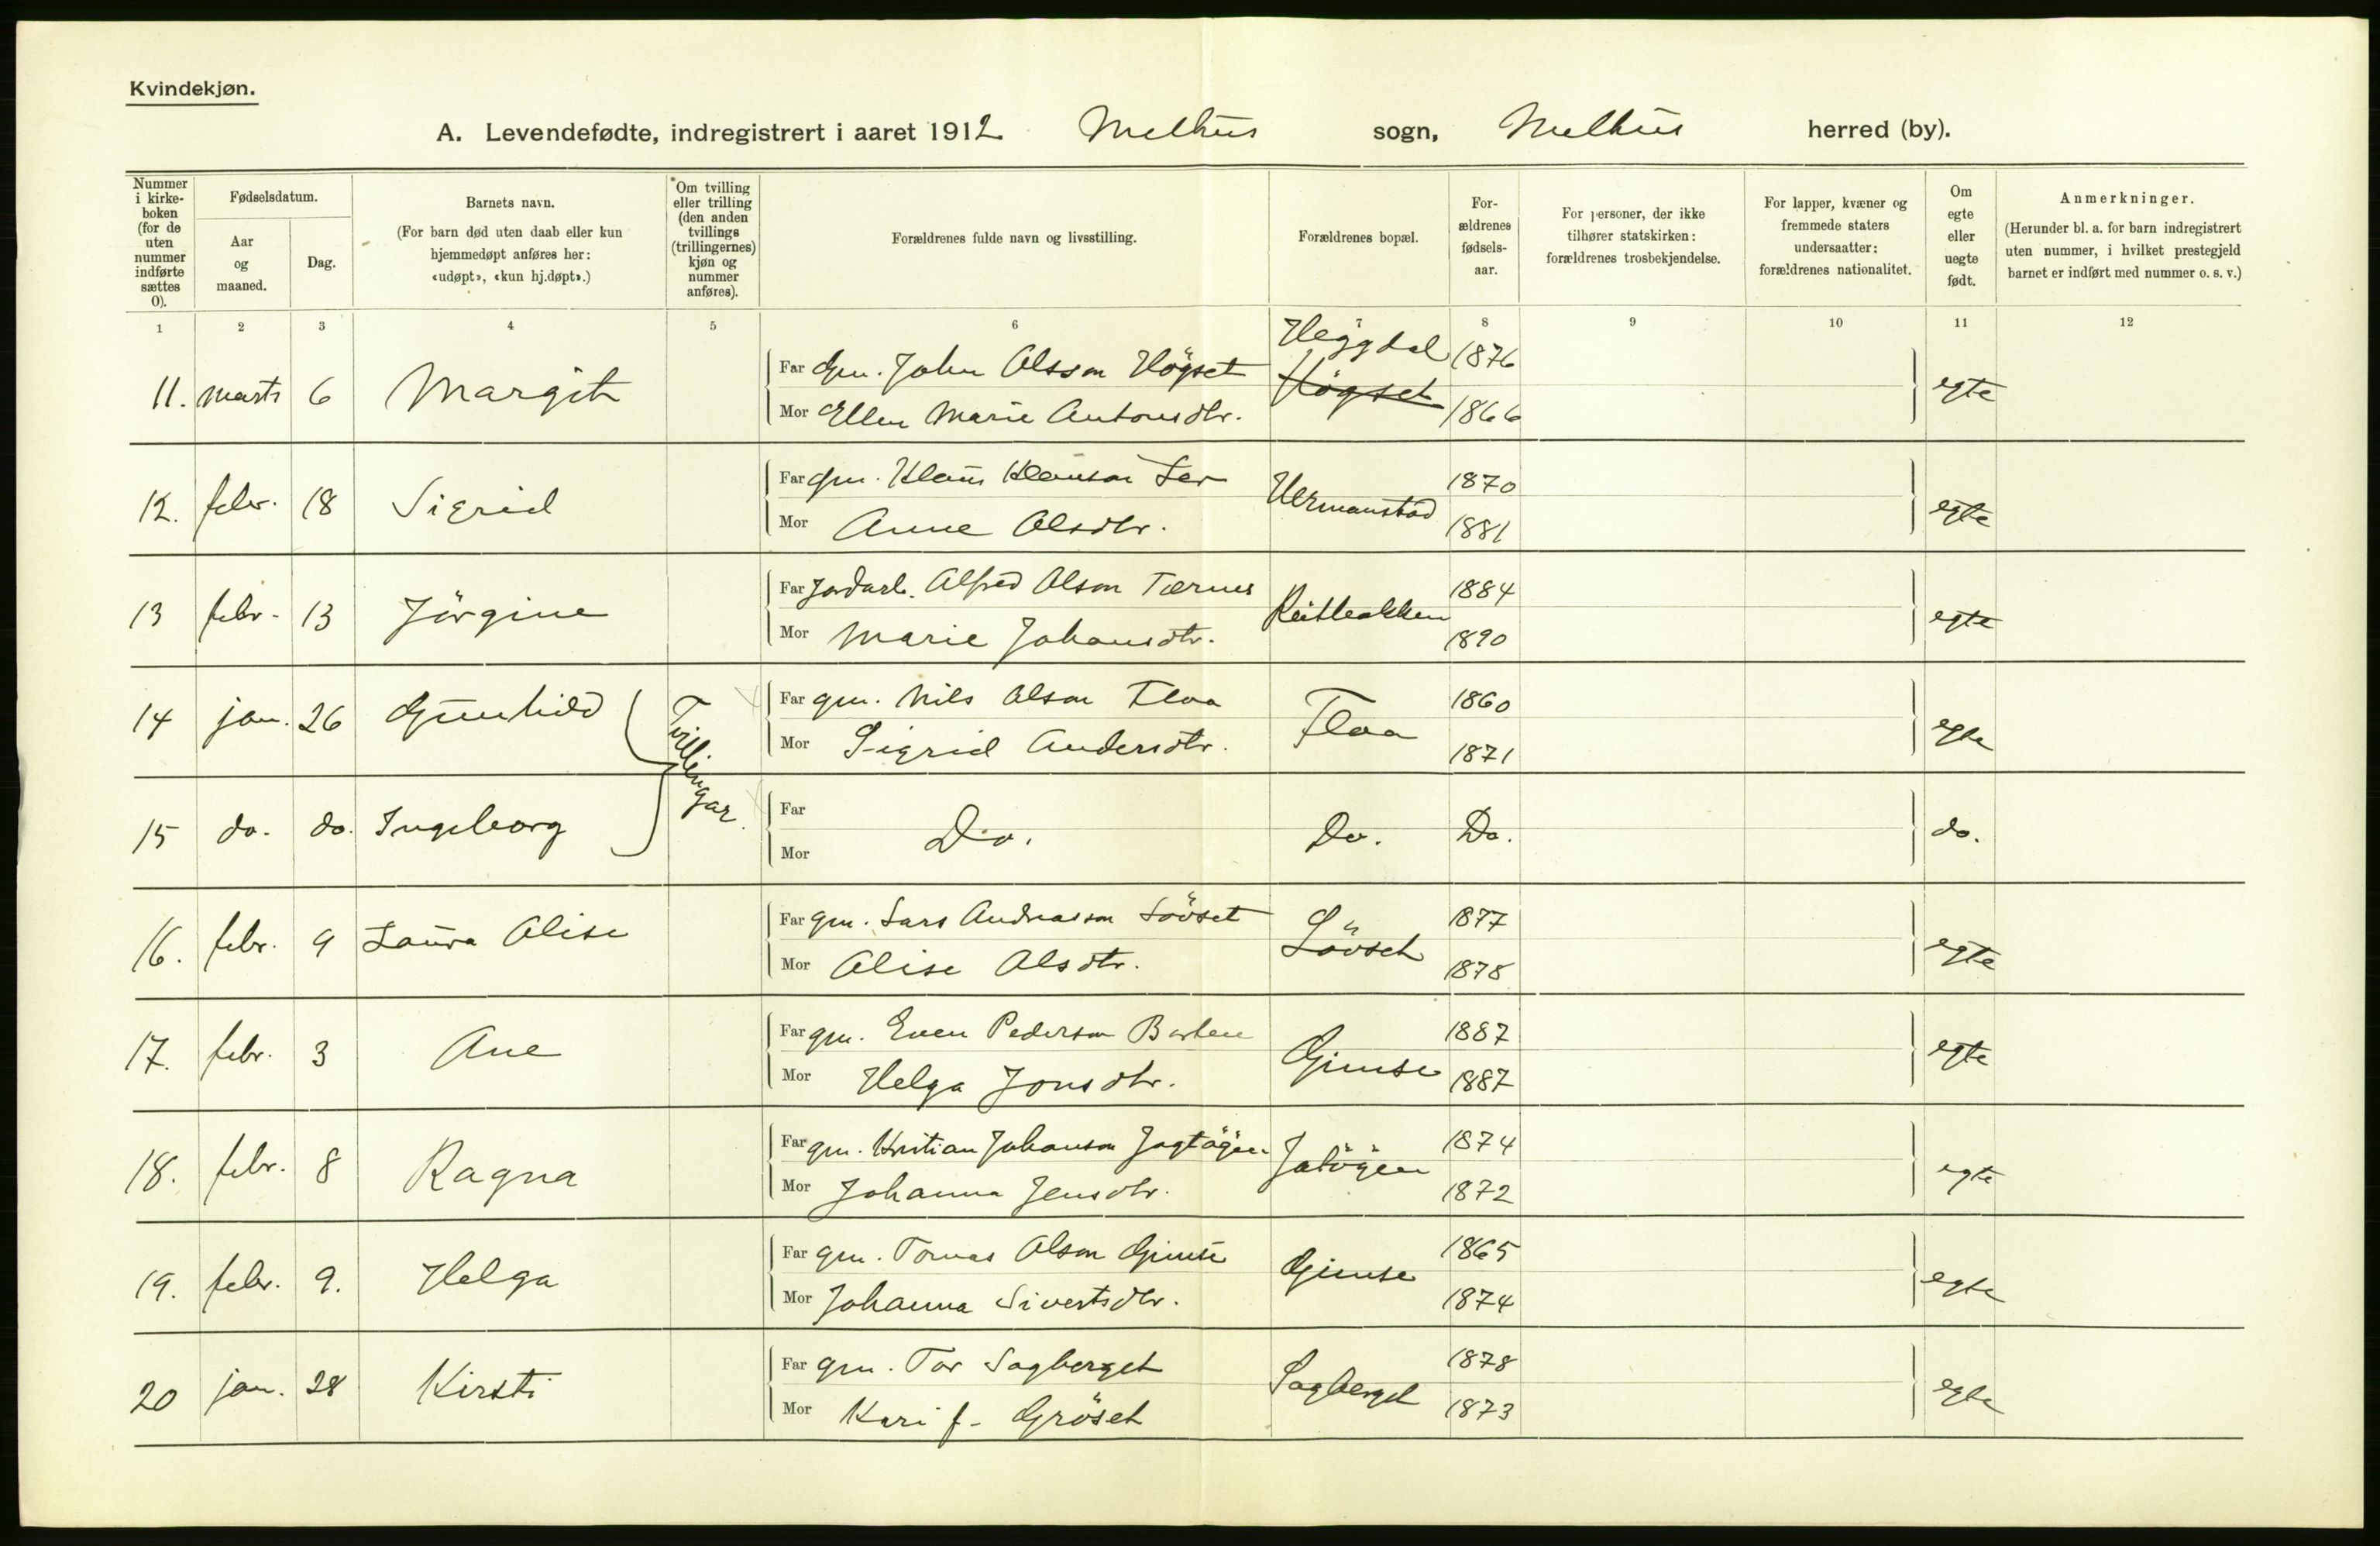 Kvindekjøn.
A. Levendefødte, indregistrert i aaret 1912 Melhus sogn, Melhus herred (by).
Nummer i kirke-boken (for de uten nummer indførte sættes 0).
Fødselsdatum.
Aar og maaned.
Dag.
Barnets navn.
(For barn død uten daab eller kun hjemmedøpt anføres her: «udøpt», «kun hj.døpt».)
*Om tvilling eller trilling (den anden tvillings (trillingernes) kjøn og nummer anføres).
Forældrenes fulde navn og livsstilling.
Forældrenes bopæl.
For-ældrenes fødsels-aar.
For personer, der ikke tilhører statskirken: forældrenes trosbekjendelse.
For lapper, kvæner og fremmede staters undersaatter: forældrenes nationalitet.
Om egte eller uegte født.
Anmerkninger.
(Herunder bl. a. for barn indregistrert uten nummer, i hvilket prestegjeld barnet er indført med nummer o. s. v.)
1 2 3 4 5 6 7 8 9 10 11 12
11. marts 6 Margit Far Gm. John Olsson Högset Heggdal Högset 1876 egte
Mor Ellen Marie Antonsdtr. 1866
12. febr. 18 Sigrid Far gm. Klaus Klauson Ler 1870 egte
Mor Anne Olsdtr. 1881
13 febr. 13 Jörgine Far Jordarb. Alfred Olson Tærnes 1884 egte
Mor Marie Johansdtr. 1890
14 jan. 26 Gunhild Tvillingar. Far gm. Nils Olson Floa Floa 1860 egte
Mor Sigrid Andersdtr. 1871
15 do. do. Ingeborg Far Mor Do. Do. Do. do.
16. febr. 9 Laura Alise Far gm. Lars Andreasson Lövset Lövset 1877 egte
Mor Alise Olsdtr. 1878
17. febr. 3 Ane Far gm. Even Pederson Gimse 1887 egte
Mor Helga Jonsdtr. 1887
18. febr. 8 Ragna Far gm. Kristian Johanson Jagtöjen Jatöjen 1874 egte
Mor Johanna Jensdtr. 1872
19. febr. 9. Helga Far gm. Tomas Olson Gimse Gimse 1865 egte
Mor Johanna Sivertsdtr. 1874
20 jan. 28 Kirsti Far gm. Tor Sagberget Sagberget 1878 egte
Mor Kari f. Gröset 1873